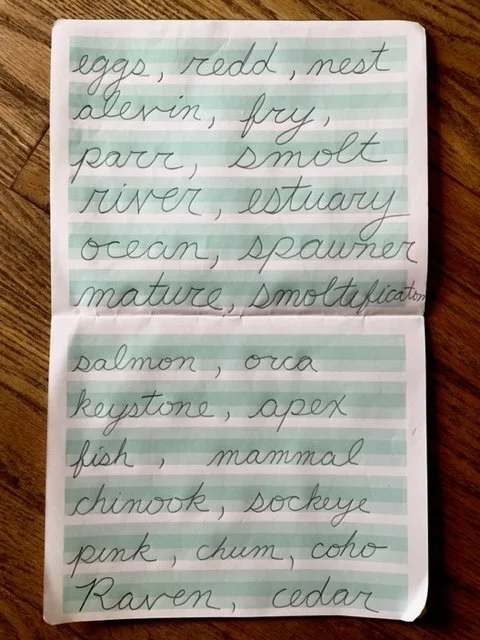 eggs, redd, nest
alevin, fry,
parr, smolt
river, estuary
ocean, spawner
mature, smoltification
salmon, orca
keystone, apex
fish, mammal
chinook, sockeye
pink, chum, coho
Raven, cedar